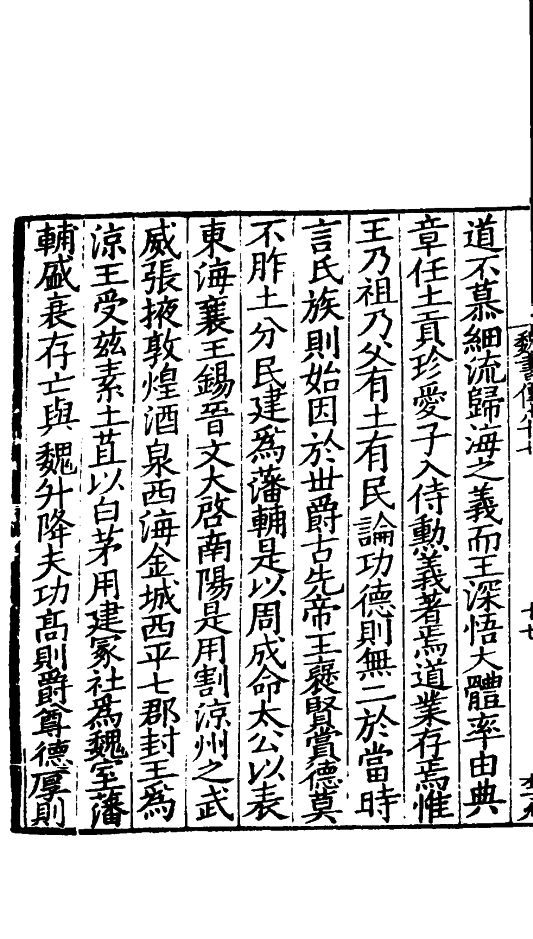 道不慕細流歸海之義而王深悟大體率由典
章任土貢珍愛子入侍勳義著焉道業存焉惟
王乃祖乃父有土有民論功德則無二於當時
言氏族則始因於世爵古先帝王褒賢賞德莫
不胙土分民建為藩輔是以周成命太公以表
東海襄王錫晉文大啓南陽是用割涼州之武
威張掖敦煌酒泉西海金城西平七郡封王為
涼王受茲素土苴以白茅用建冢社為魏室藩
輔盛衰存亡與魏升降夫功高則爵尊德厚則